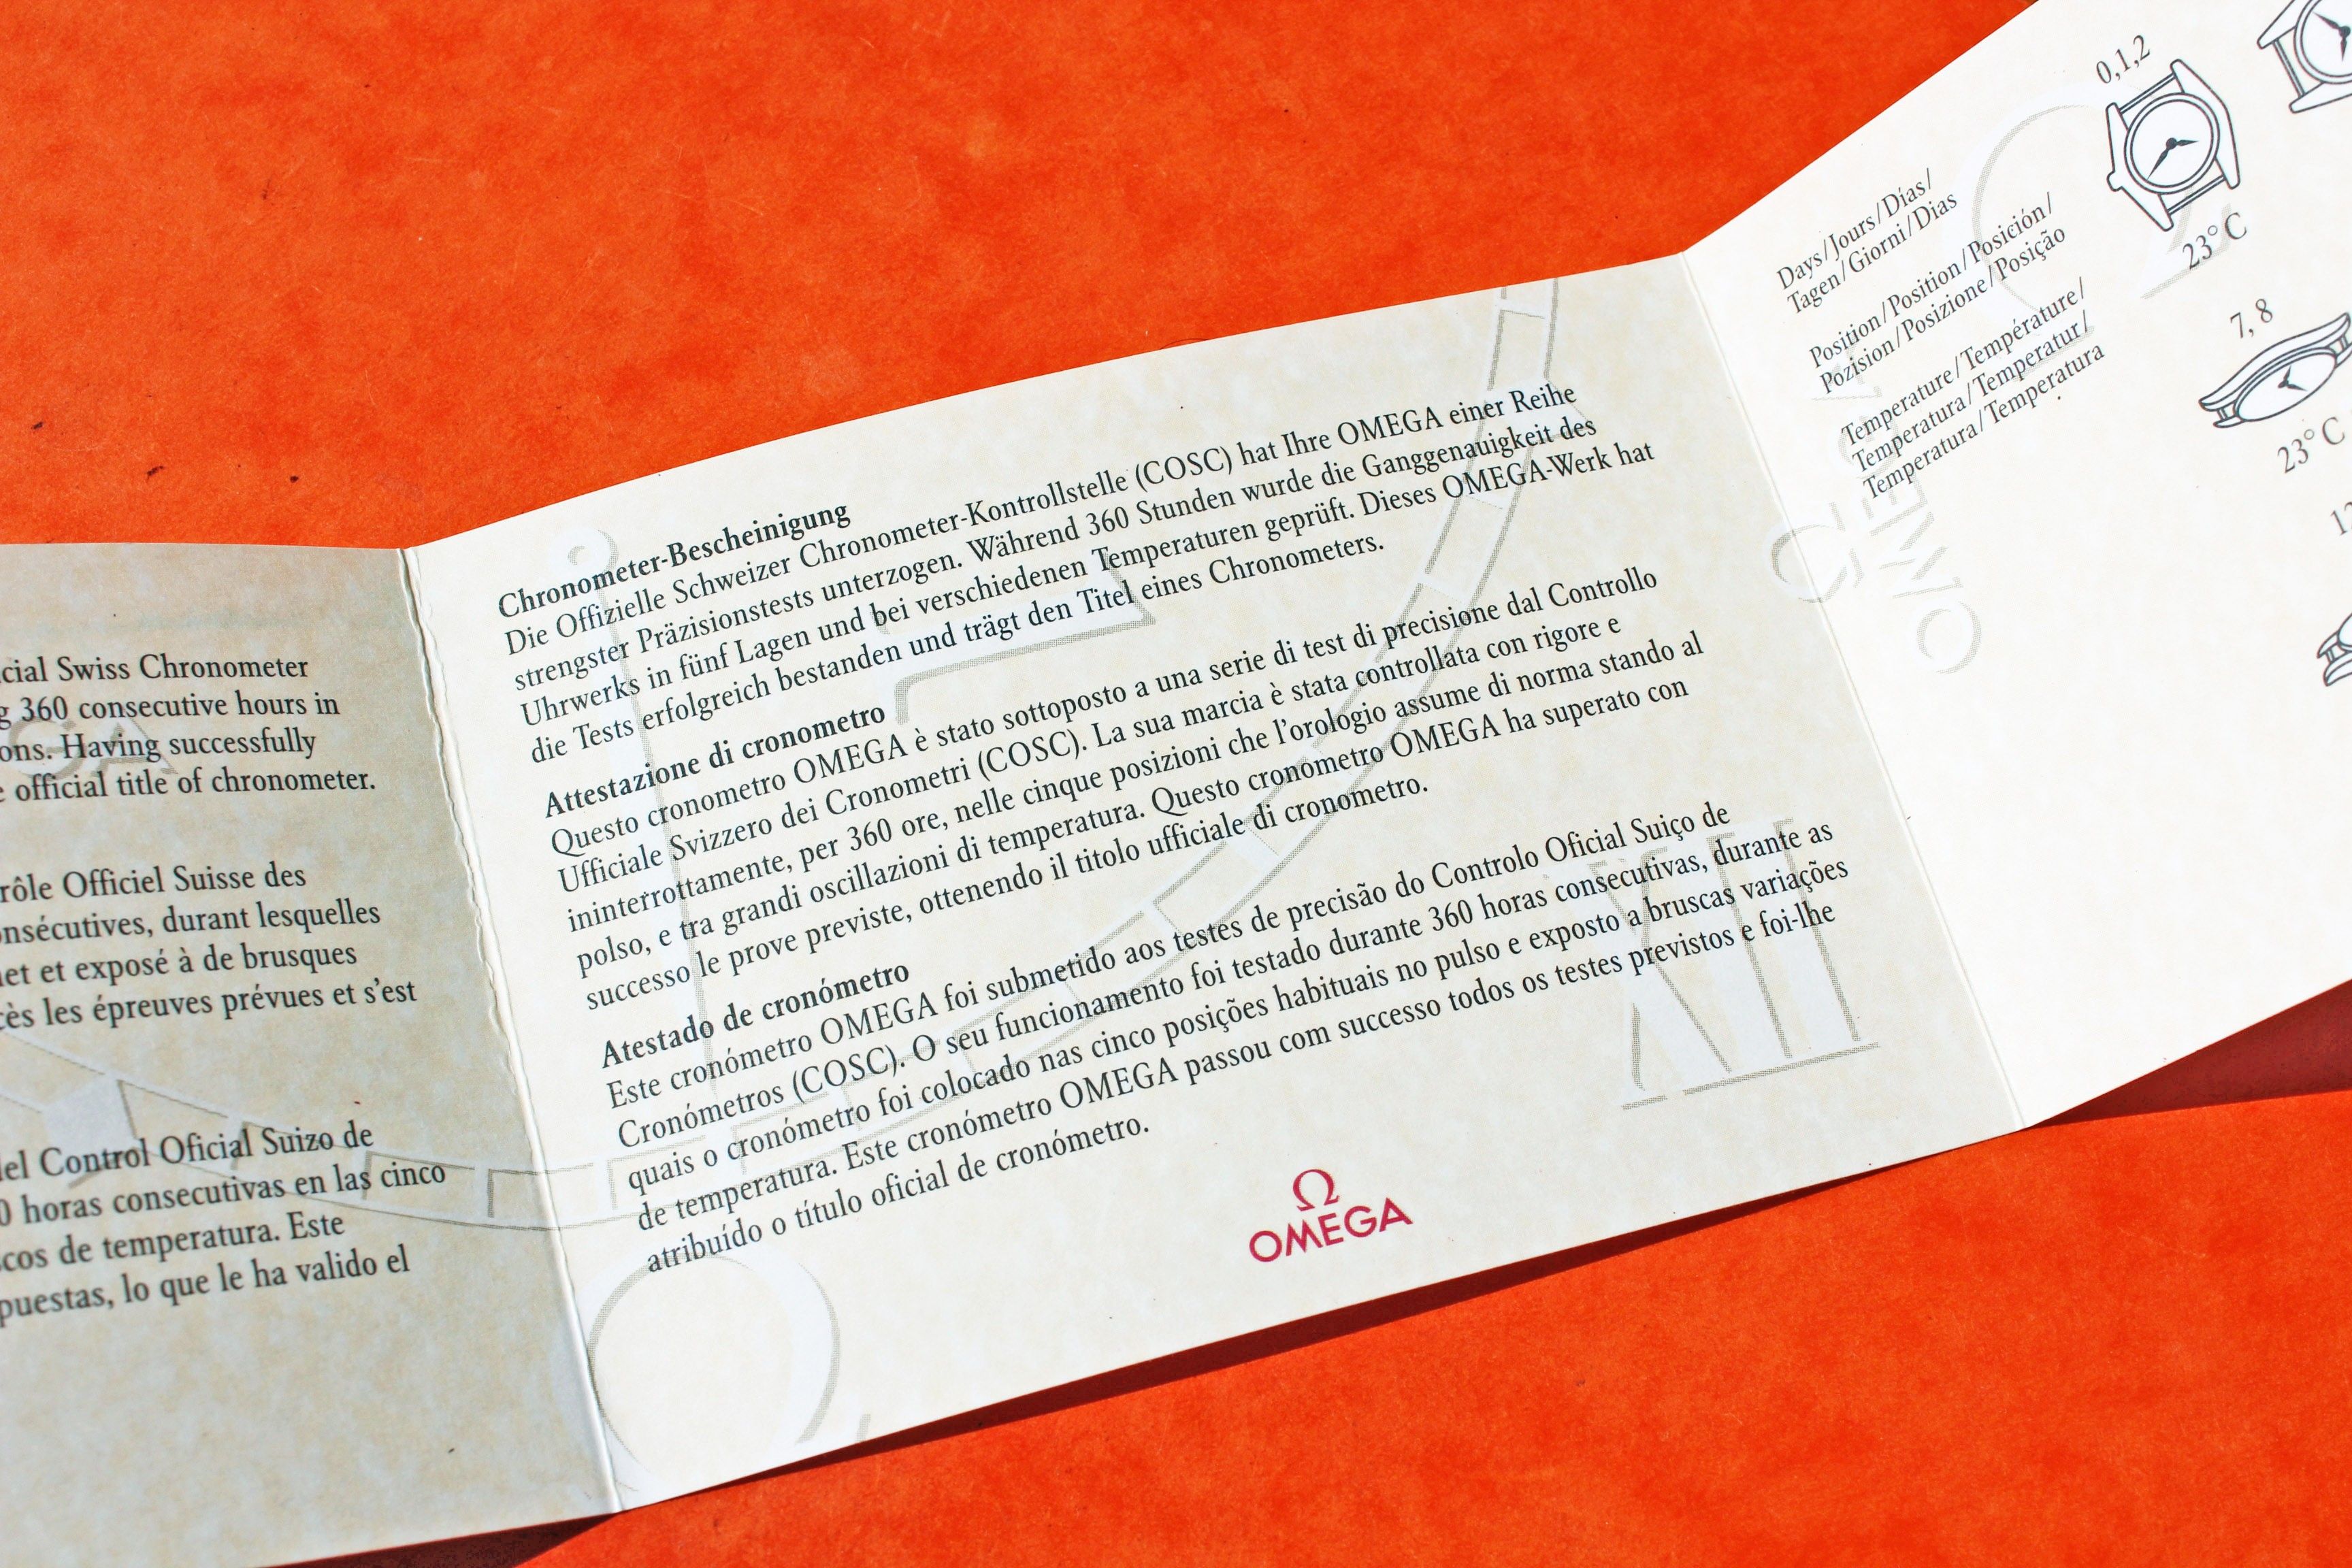 cial Swiss Chronometer
360 consecutive hours in
ons. Having successfully
official title of chronometer.
rôle Officiel Suisse des
onsécutives, durant lesquelles
et et exposé à de brusques
cès les épreuves prévues et s'est
del Control Oficial Suizo de
0 horas consecutivas en las cinco
cos de temperatura. Este
puestas, lo que le ha valido el
Chronometer-Bescheinigung
Die Offizielle Schweizer Chronometer-Kontrollstelle (COSC) hat Ihre OMEGA einer Reihe
strengster Präzisionstests unterzogen. Während 360 Stunden wurde die Ganggenauigkeit des
Uhrwerks in fünf Lagen und bei verschiedenen Temperaturen geprüft. Dieses OMEGA-Werk hat
die Tests erfolgreich bestanden und trägt den Titel eines Chronometers.
Attestazione di cronometro
Questo cronometro OMEGA è stato sottoposto a una serie di test di precisione dal Controllo
Ufficiale Svizzero dei Cronometri (COSC). La sua marcia è stata controllata con rigore e
ininterrottamente, per 360 ore, nelle cinque posizioni che l'orologio assume di norma stando al
polso, e tra grandi oscillazioni di temperatura. Questo cronometro OMEGA ha superato con
successo le prove previste, ottenendo il titolo ufficiale di cronometro.
Atestado de cronómetro
Este cronómetro OMEGA foi submetido aos testes de precisão do Controlo Oficial Suiço de
Cronómetros (COSC). O seu funcionamento foi testado durante 360 horas consecutivas, durante as
quais o cronómetro foi colocado nas cinco posições habituais no pulso e exposto a bruscas variações
de temperatura. Este cronómetro OMEGA passou com successo todos os testes previstos e foi-lhe
atribuído o título oficial de cronómetro.
Ω
OMEGA
XII
Days/Jours/Días/
Tagen/Giorni/Dias
Position/Position/Posición/
Pozision/Posizione/Posição
Temperature/Température/
Temperatura/Temperatur/
Temperatura/Temperatura
Ω
OMEGA
0,1,2
23°C
7, 8
23°C